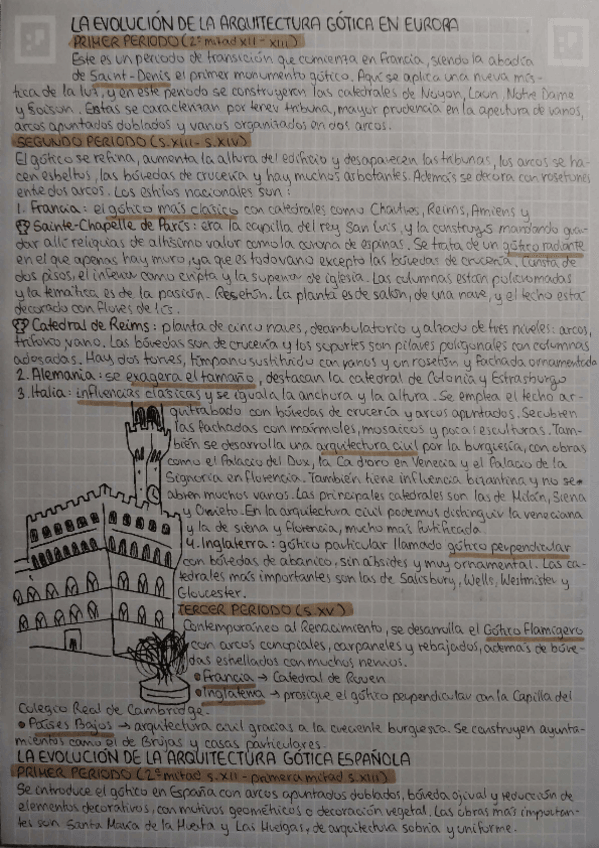 LA EVOLUCIÓN DE LA ARQUITECTURA GÓTICA EN EUROPA
PRIMER PERIODO (2ª mitad XII - XIII)
Este es un periodo de transición que comienza en Francia, siendo la abadía
de Saint-Denis el primer monumento gótico. Aquí se aplica una nueva mís-
tica de la luz, y en este periodo se construyeron las catedrales de Noyon, Laon, Notre Dame
y Soison. Estas se caracterizan por tener tribuna, mayor prudencia en la apertura de vanos,
arcos apuntados doblados y vanos organizados en dos arcos.
SEGUNDO PERIODO (s.XIII - s.XIV)
El gótico se refina, aumenta la altura del edificio y desaparecen las tribunas, los arcos se ha-
cen esbeltos, las bóvedas de crucería y hay muchos arbotantes. Además se decora con rosetones
entre dos arcos. Los estilos nacionales son:
1. Francia: el gótico más clásico con catedrales como Chartres, Reims, Amiens y
Sainte-Chapelle de París: era la capilla del rey San Luis, y la construyó mandando guar-
dar allí reliquias de altísimo valor como la corona de espinas. Se trata de un gótico radiante
en el que apenas hay muro, ya que es todo vano excepto las bóvedas de crucería. Consta de
dos pisos, el inferior como cripta y la superior de iglesia. Las columnas están policromadas
y la temática es de la pasión. Rosetón. La planta es de salón, de una nave, y el techo está
decorado con flores de lis.
Catedral de Reims: planta de cinco naves, deambulatorio y alzado de tres niveles: arcos,
triforio, vano. Las bóvedas son de crucería y los soportes son pilares poligonales con columnas
adosadas. Hay dos torres, tímpano sustituido con vanos y un rosetón y fachada ornamentada
2. Alemania: se exagera el tamaño, destacan la catedral de Colonia y Estrasburgo
3. Italia: influencias clásicas y se iguala la anchura y la altura. Se emplea el techo ar-
quitrabado con bóvedas de crucería y arcos apuntados. Se cubren
las fachadas con mármoles, mosaicos y pocas esculturas. Tam-
bién se desarrolla una arquitectura civil por la burguesía, con obras
como el Palacio del Dux, la Ca d'oro en Venecia y el Palacio de la
Signoria en Florencia. También tiene influencia bizantina y no se
abren muchos vanos. Las principales catedrales son las de Milán, Siena
y Orvieto. En la arquitectura civil podemos distinguir la veneciana
y la de siena y florencia, mucho más fortificada
4. Inglaterra: gótico particular llamado gótico perpendicular
con bóvedas de abanico, sin ábsides y muy ornamental. Las ca-
tedrales más importantes son las de Salisbury, Wells, Westmister y
Gloucester.
TERCER PERIODO (s.XV)
Contemporáneo al Renacimiento, se desarrolla el Gótico Flamígero
con arcos conopiales, carpaneles y rebajados, además de bóve-
das estrelladas con muchos nervios.
• Francia → Catedral de Ruven
• Inglaterra → prosigue el gótico perpendicular con la Capilla del
Colegio Real de Cambridge.
• Países Bajos → arquitectura civil gracias a la creciente burguesía. Se construyen ayunta-
mientos como el de Brujas y casas particulares.
LA EVOLUCIÓN DE LA ARQUITECTURA GÓTICA ESPAÑOLA
PRIMER PERIODO (2ª mitad s.XII - primera mitad s.XIII)
Se introduce el gótico en España con arcos apuntados doblados, bóveda ojival y reducción de
elementos decorativos, con motivos geométricos o decoración vegetal. Las obras más importan-
tes son Santa María de la Huerta y Las Huelgas, de arquitectura sobria y uniforme.